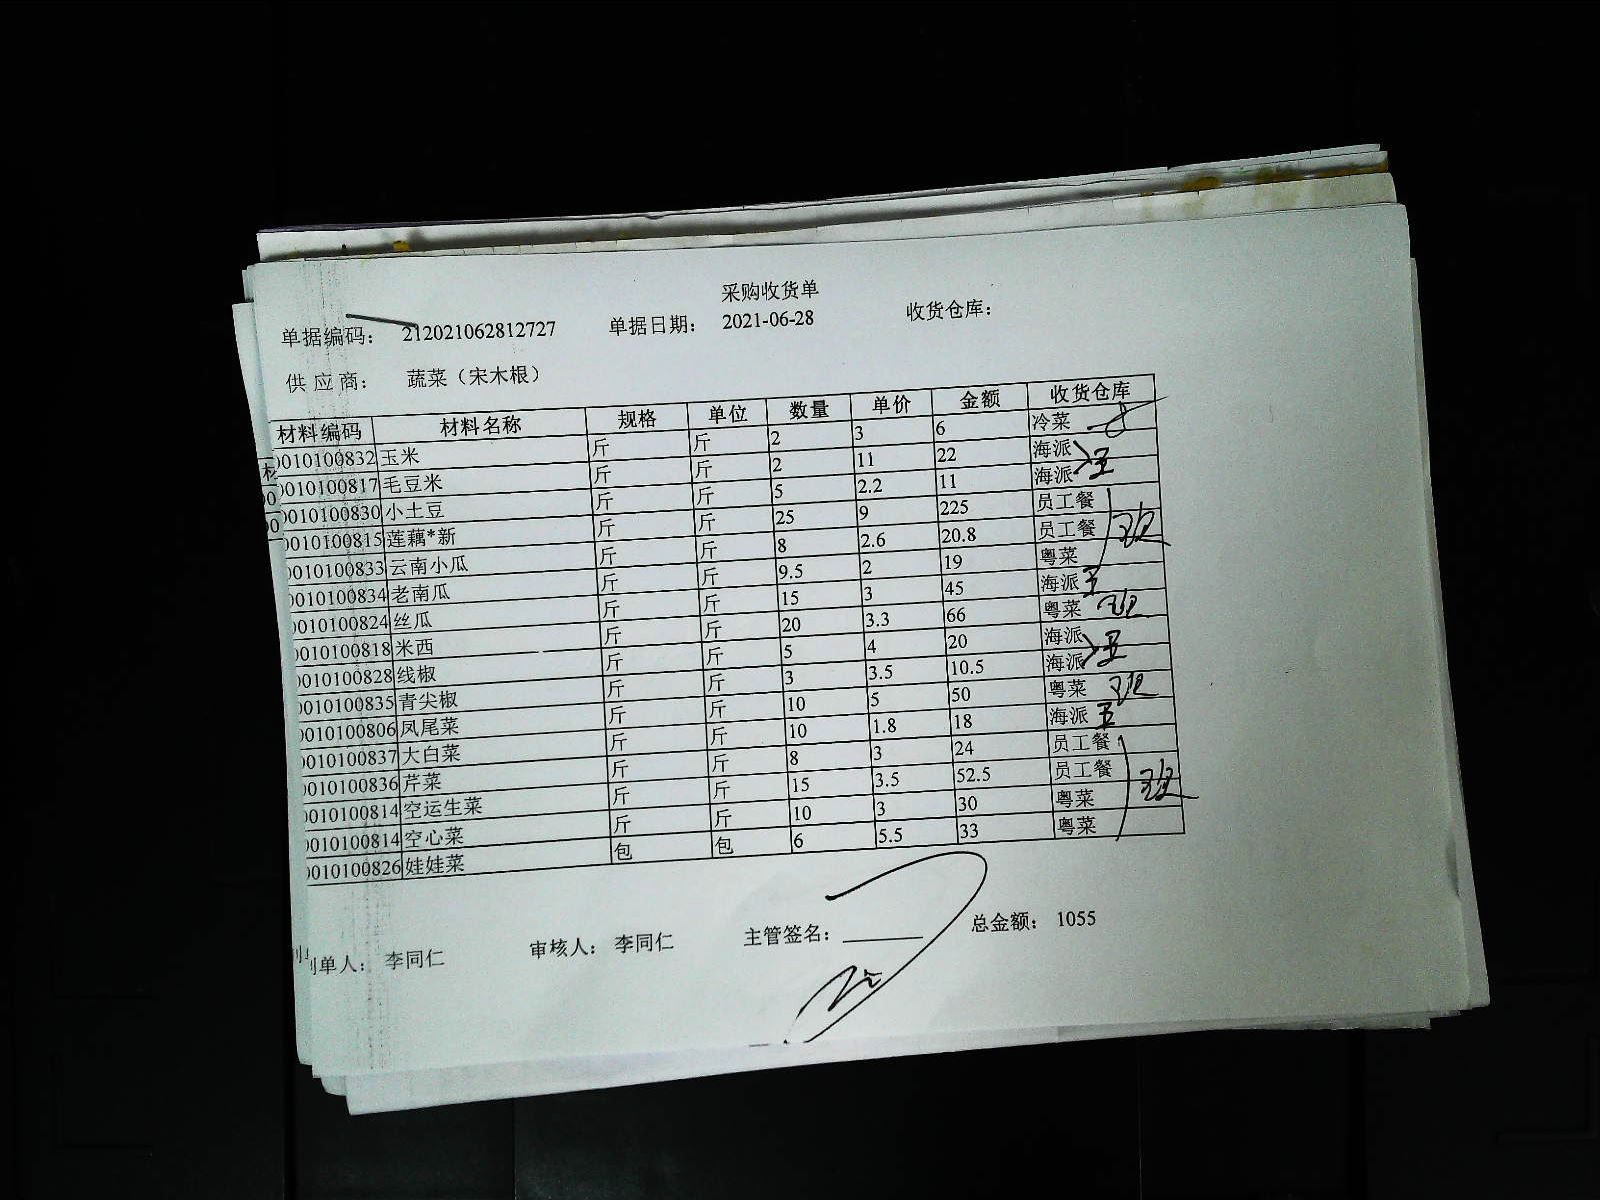 采购收货单
单据编码： 212021062812727 单据日期： 2021-06-28 收货仓库：
供应商： 蔬菜（宋木根）
材料编码 材料名称 规格 单位 数量 单价 金额 收货仓库
0010100832 玉米 斤 斤 2 3 6 冷菜
0010100817 毛豆米 斤 斤 2 11 22 海派
0010100830 小土豆 斤 斤 5 2.2 11 海派
0010100815 莲藕*新 斤 斤 25 9 225 员工餐
0010100833 云南小瓜 斤 斤 8 2.6 20.8 员工餐
0010100834 老南瓜 斤 斤 9.5 2 19 粤菜
0010100824 丝瓜 斤 斤 15 3 45 海派
0010100818 米西 斤 斤 20 3.3 66 粤菜
0010100828 线椒 斤 斤 5 4 20 海派
0010100835 青尖椒 斤 斤 3 3.5 10.5 海派
0010100806 凤尾菜 斤 斤 10 5 50 粤菜
0010100837 大白菜 斤 斤 10 1.8 18 海派
0010100836 芹菜 斤 斤 8 3 24 员工餐
0010100814 空运生菜 斤 斤 15 3.5 52.5 员工餐
0010100814 空心菜 斤 斤 10 3 30 粤菜
0010100826 娃娃菜 包 包 6 5.5 33 粤菜
制单人： 李同仁 审核人： 李同仁 主管签名： 总金额： 1055